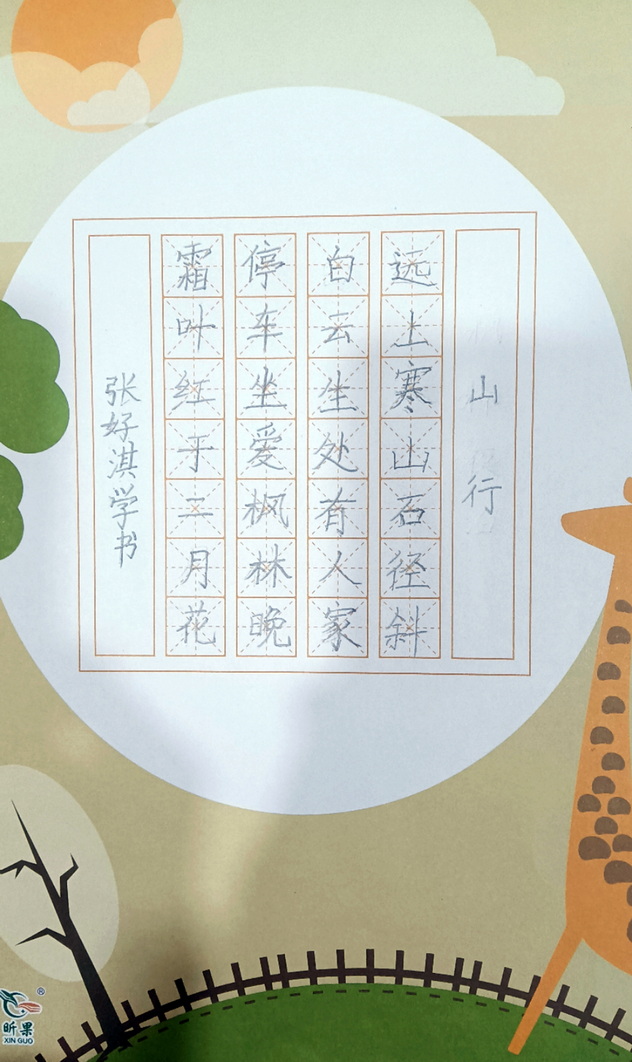 山行
远上寒山石径斜
白云生处有人家
停车坐爱枫林晚
霜叶红于二月花
张好淇学书
昕果®
XIN GUO